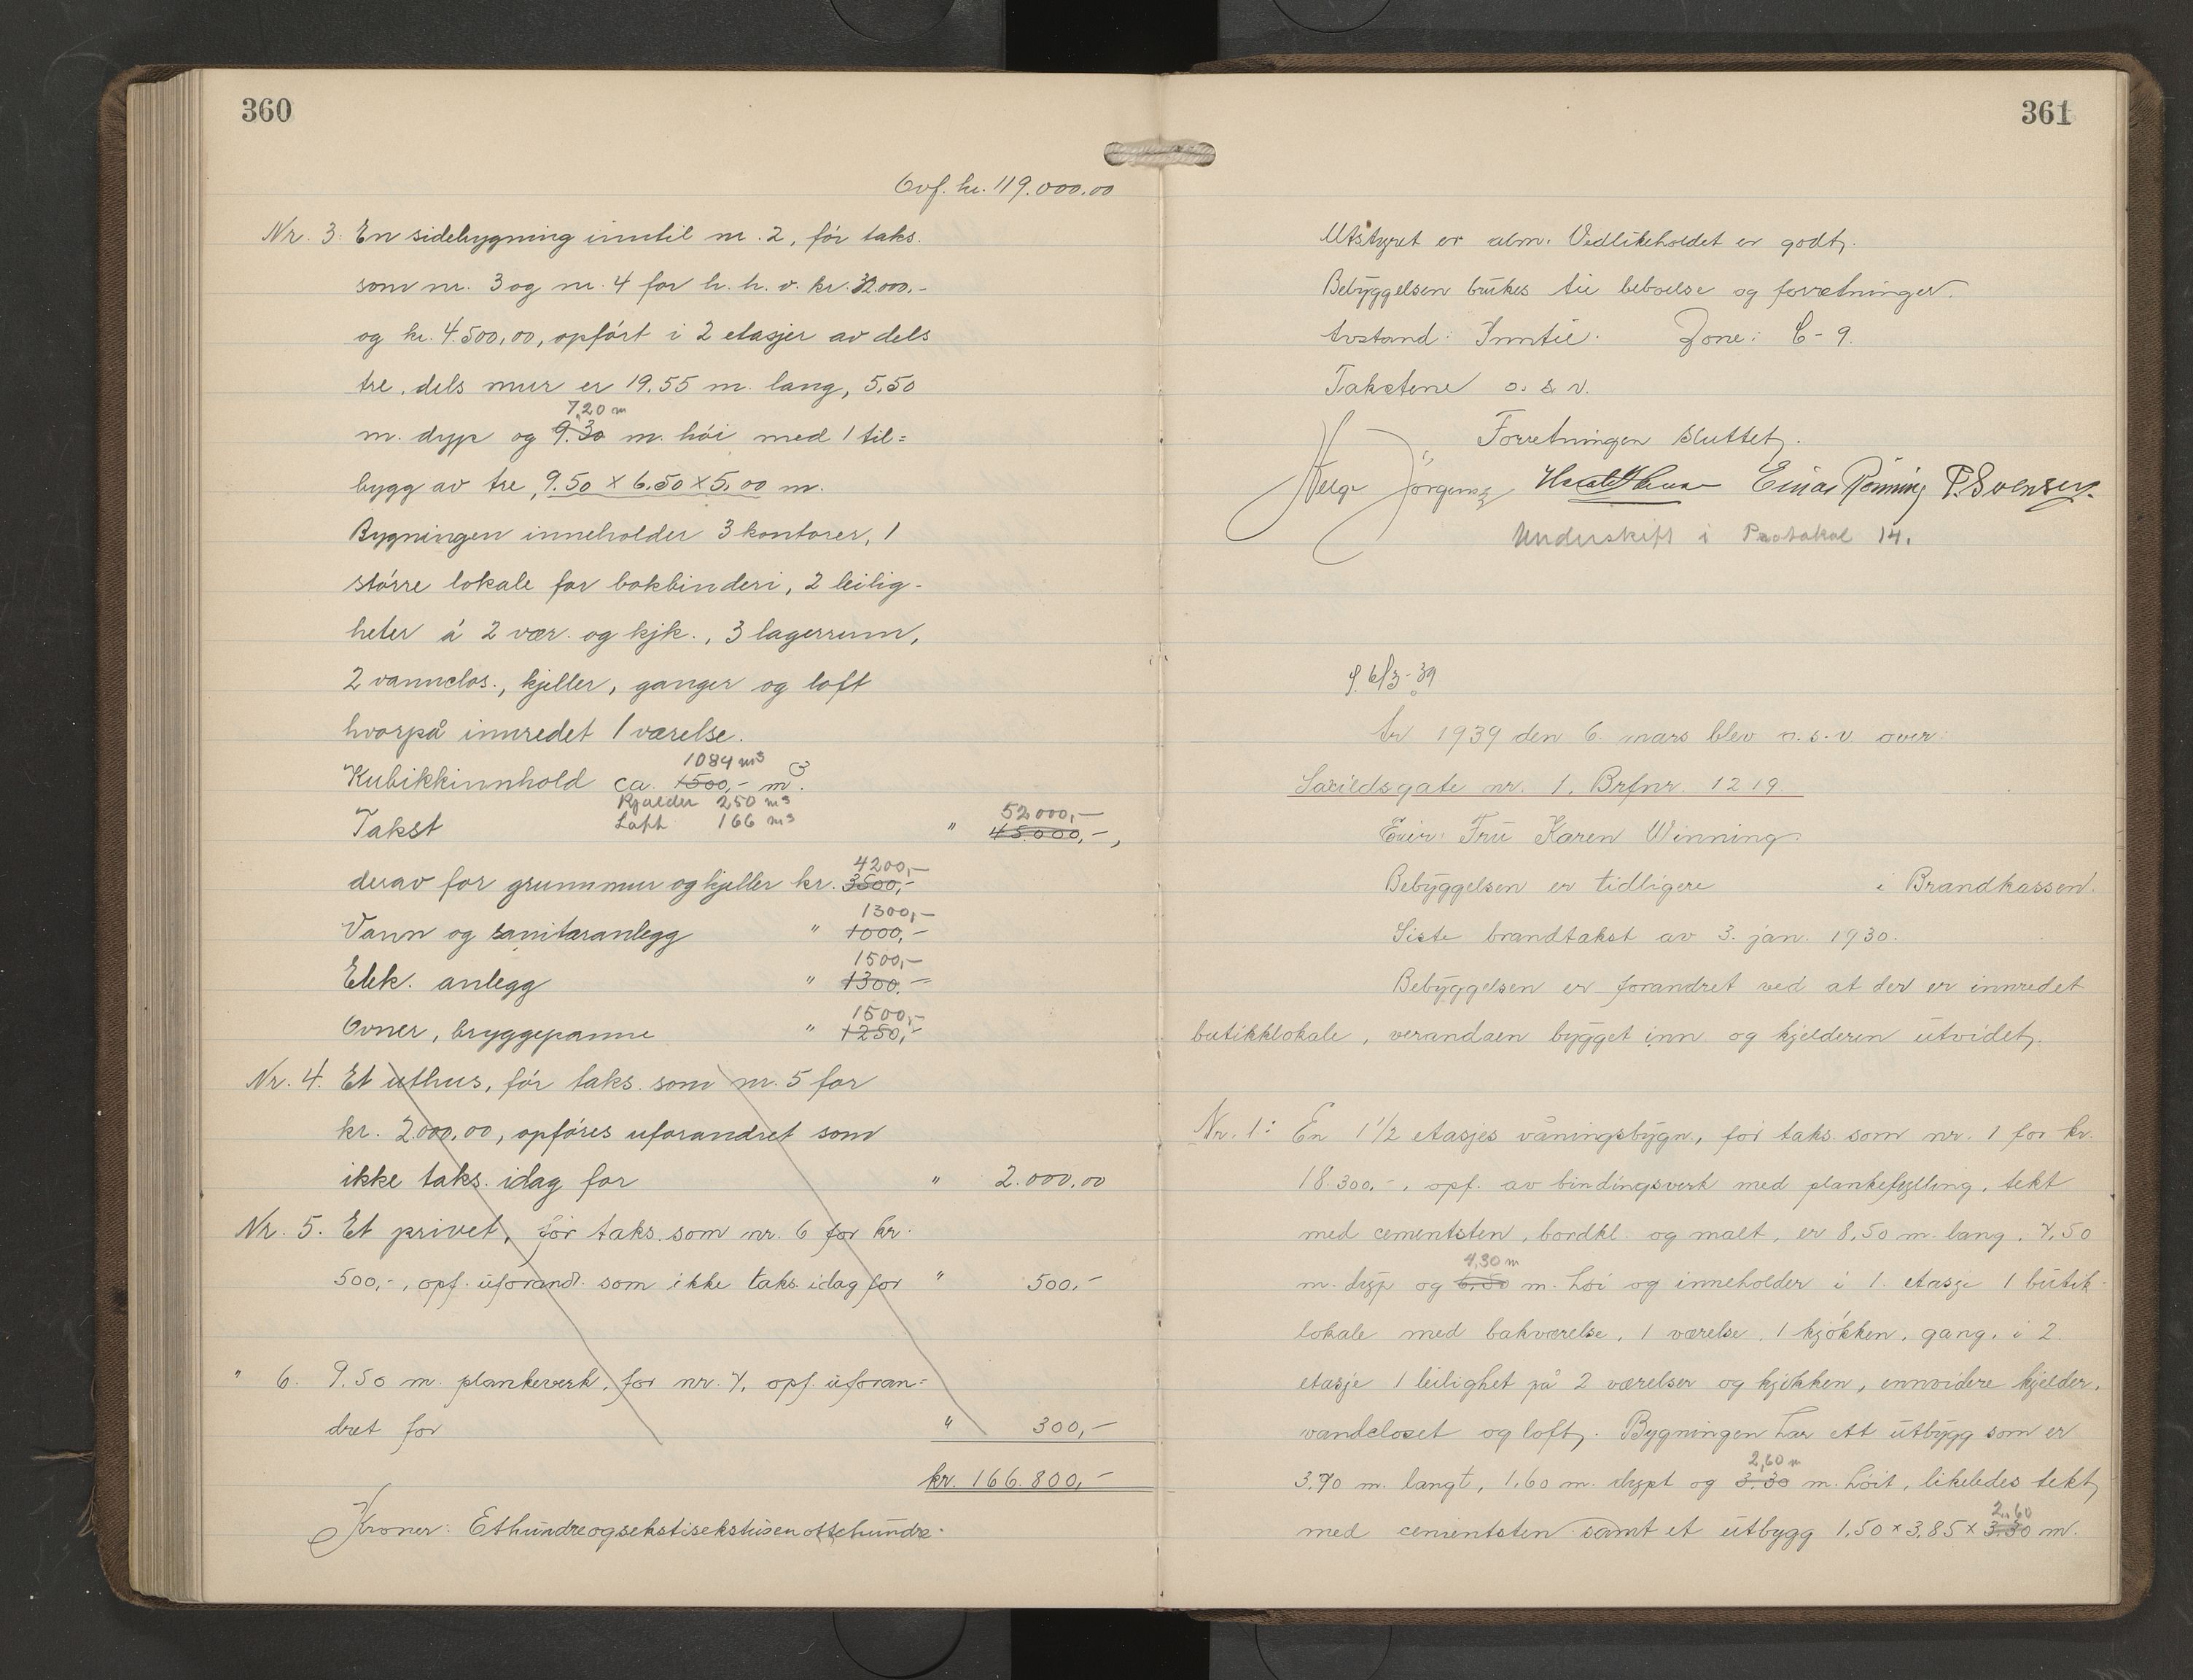 360
Ovf. kr. 119.000.00
Nr. 3. En sidebygning inntil nr. 2, før taks.
som nr. 3 og nr. 4 for h. h. v. kr. 32.000.-
og kr. 4.500,00, opført i 2 etasjer av dels
tre, dels mur er 19.55 m. lang, 5,50
7,20 m
m. dyp og 9.30 m. høi med 1 til=
bygg av tre, 9.50 × 6.50 × 5.00 m.
Bygningen inneholder 3 kontorer, 1
større lokale for bokbinderi, 2 leilig-
heter á 2 vær. og kjk., 3 lagerrum,
2 vannclos., kjeller, ganger og loft
hvorpå innredet 1 værelse.
1084 m³
Kubikkinnhold ca. 1500,- m³.
Kjelder 250 m³
Loft 166 m³
52000,-
Takst " 45000,-,
4200,-
derav for grunnmur og kjeller kr. 3500,-
1300,-
Vann og sanitæranlegg " 1000,-
1500,-
Elek. anlegg " 1300.-
1500,-
Ovner, bryggepanne " 1250,-
Nr. 4. Et uthus, før taks. som nr. 5 for
kr. 2000.00, opføres uforandret som
ikke taks. idag for " 2.000,00
Nr. 5. Et privet, før taks. som nr. 6 for kr.
500,-, opf. uforand. som ikke taks. idag for " 500,-
" 6. 9.50 m. plankeverk, før nr. 7, opf. uforan-
dret for " 300,-
kr. 166.800,-
Kroner: Ethundreogsekstisekstusenottehundre-
361
Utstyret er alm. Vedlikeholdet er godt.
Bebyggelsen brukes til beboelse og forretninger.
Avstand: Inntil. Zone: C-9.
Takstene o. s. v.
Forretningen sluttet.
Helge Jörgensen Einar Rönning P. Svensen.
Underskift i Protokol 14.
6/3-39
År 1939 den 6. mars blev o.s.v. over:
Sarildsgate nr. 1. Brfnr. 1219.
Eier: Fru Karen Winning.
Bebyggelsen er tidligere i Brandkassen.
Siste brandtakst av 3. jan. 1930.
Bebyggelsen er forandret ved at der er innredet
butikklokale, verandaen bygget inn og kjelderen utvidet.
Nr. 1: En 1 1/2 etasjes våningsbygn., før taks. som nr. 1 for kr.
18.300.-, opf. av bindingsverk med plankefylling, tekt
med cementsten, bordkl. og malt, er 8,50 m. lang, 7,50
4,30 m
m. dyp og 6,50 m. høi og inneholder i 1. etasje 1 butik-
lokale med bakværelse, 1 værelse, 1 kjøkken, gang, i 2.
etasje 1 leilighet på 2 værelser og kjøkken, ennvidere kjelder,
vandcloset og loft. Bygningen har ett utbygg som er
2,60 m
3.70 m. langt, 1.60 m. dypt og 3.30 m. høit, likeledes tekt
2.60
med cementsten samt et utbygg 1.50 × 3.85 × 3.30 m.